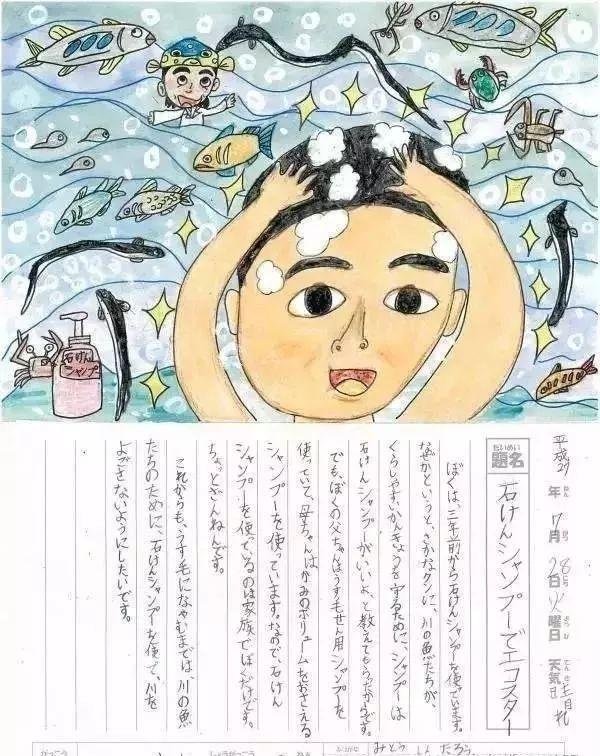 石けん
シャンプ
平成27年7月28日火曜日天気晴れ
題名 石けんシャンプーでエコスター
ぼくは、三年前から石けんシャンプーを使っています。
なぜかというと、さかなクンに、川の魚たちが、
くらしやすいかんきょうを守るために、シャンプーは
石けんシャンプーがいいよ、と教えてもらったからです。
でも、ぼくの父ちゃんはうす毛せん用シャンプーを
使っていて、母ちゃんはかみのボリュームをおさえる
シャンプーを使っています。なので、石けん
シャンプーを使っているのは家族でぼくだけです。
ちょっとざんねんです。
これからも、うす毛になやむまでは、川の魚
たちのために、石けんシャンプーを使って、川を
よごさないようにしたいです。